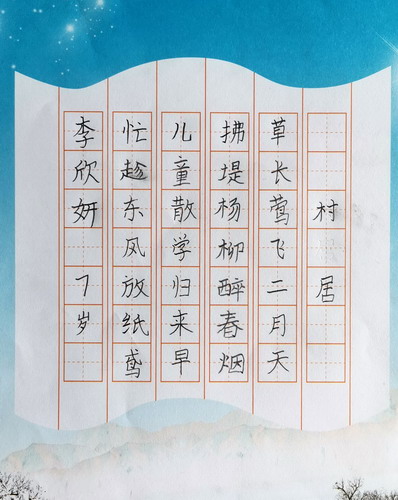 村居
草长莺飞二月天
拂堤杨柳醉春烟
儿童散学归来早
忙趁东风放纸鸢
李欣妍 7岁